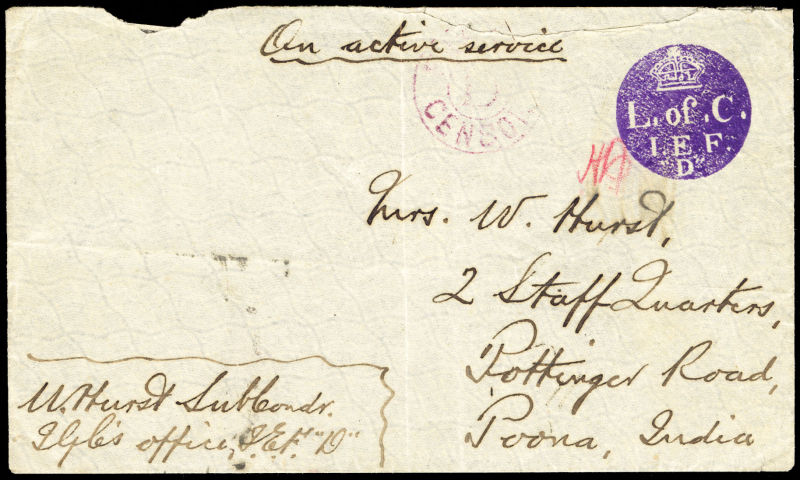 On active service
CENSO
L. of .C.
I. E. F.
"D"
Mrs. W. Hurst,
2 Staff Quarters,
Pottinger Road,
Poona, India
W. Hurst SubCondr.
office, I.E.F. "D"